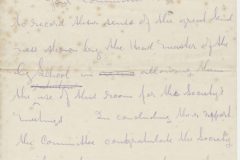 to record their sense of the great kind
ness shown by the Head Master of the
School in allowing them
the use of this room for the Society's
meetings In concluding their report
the Committee congratulate the Society